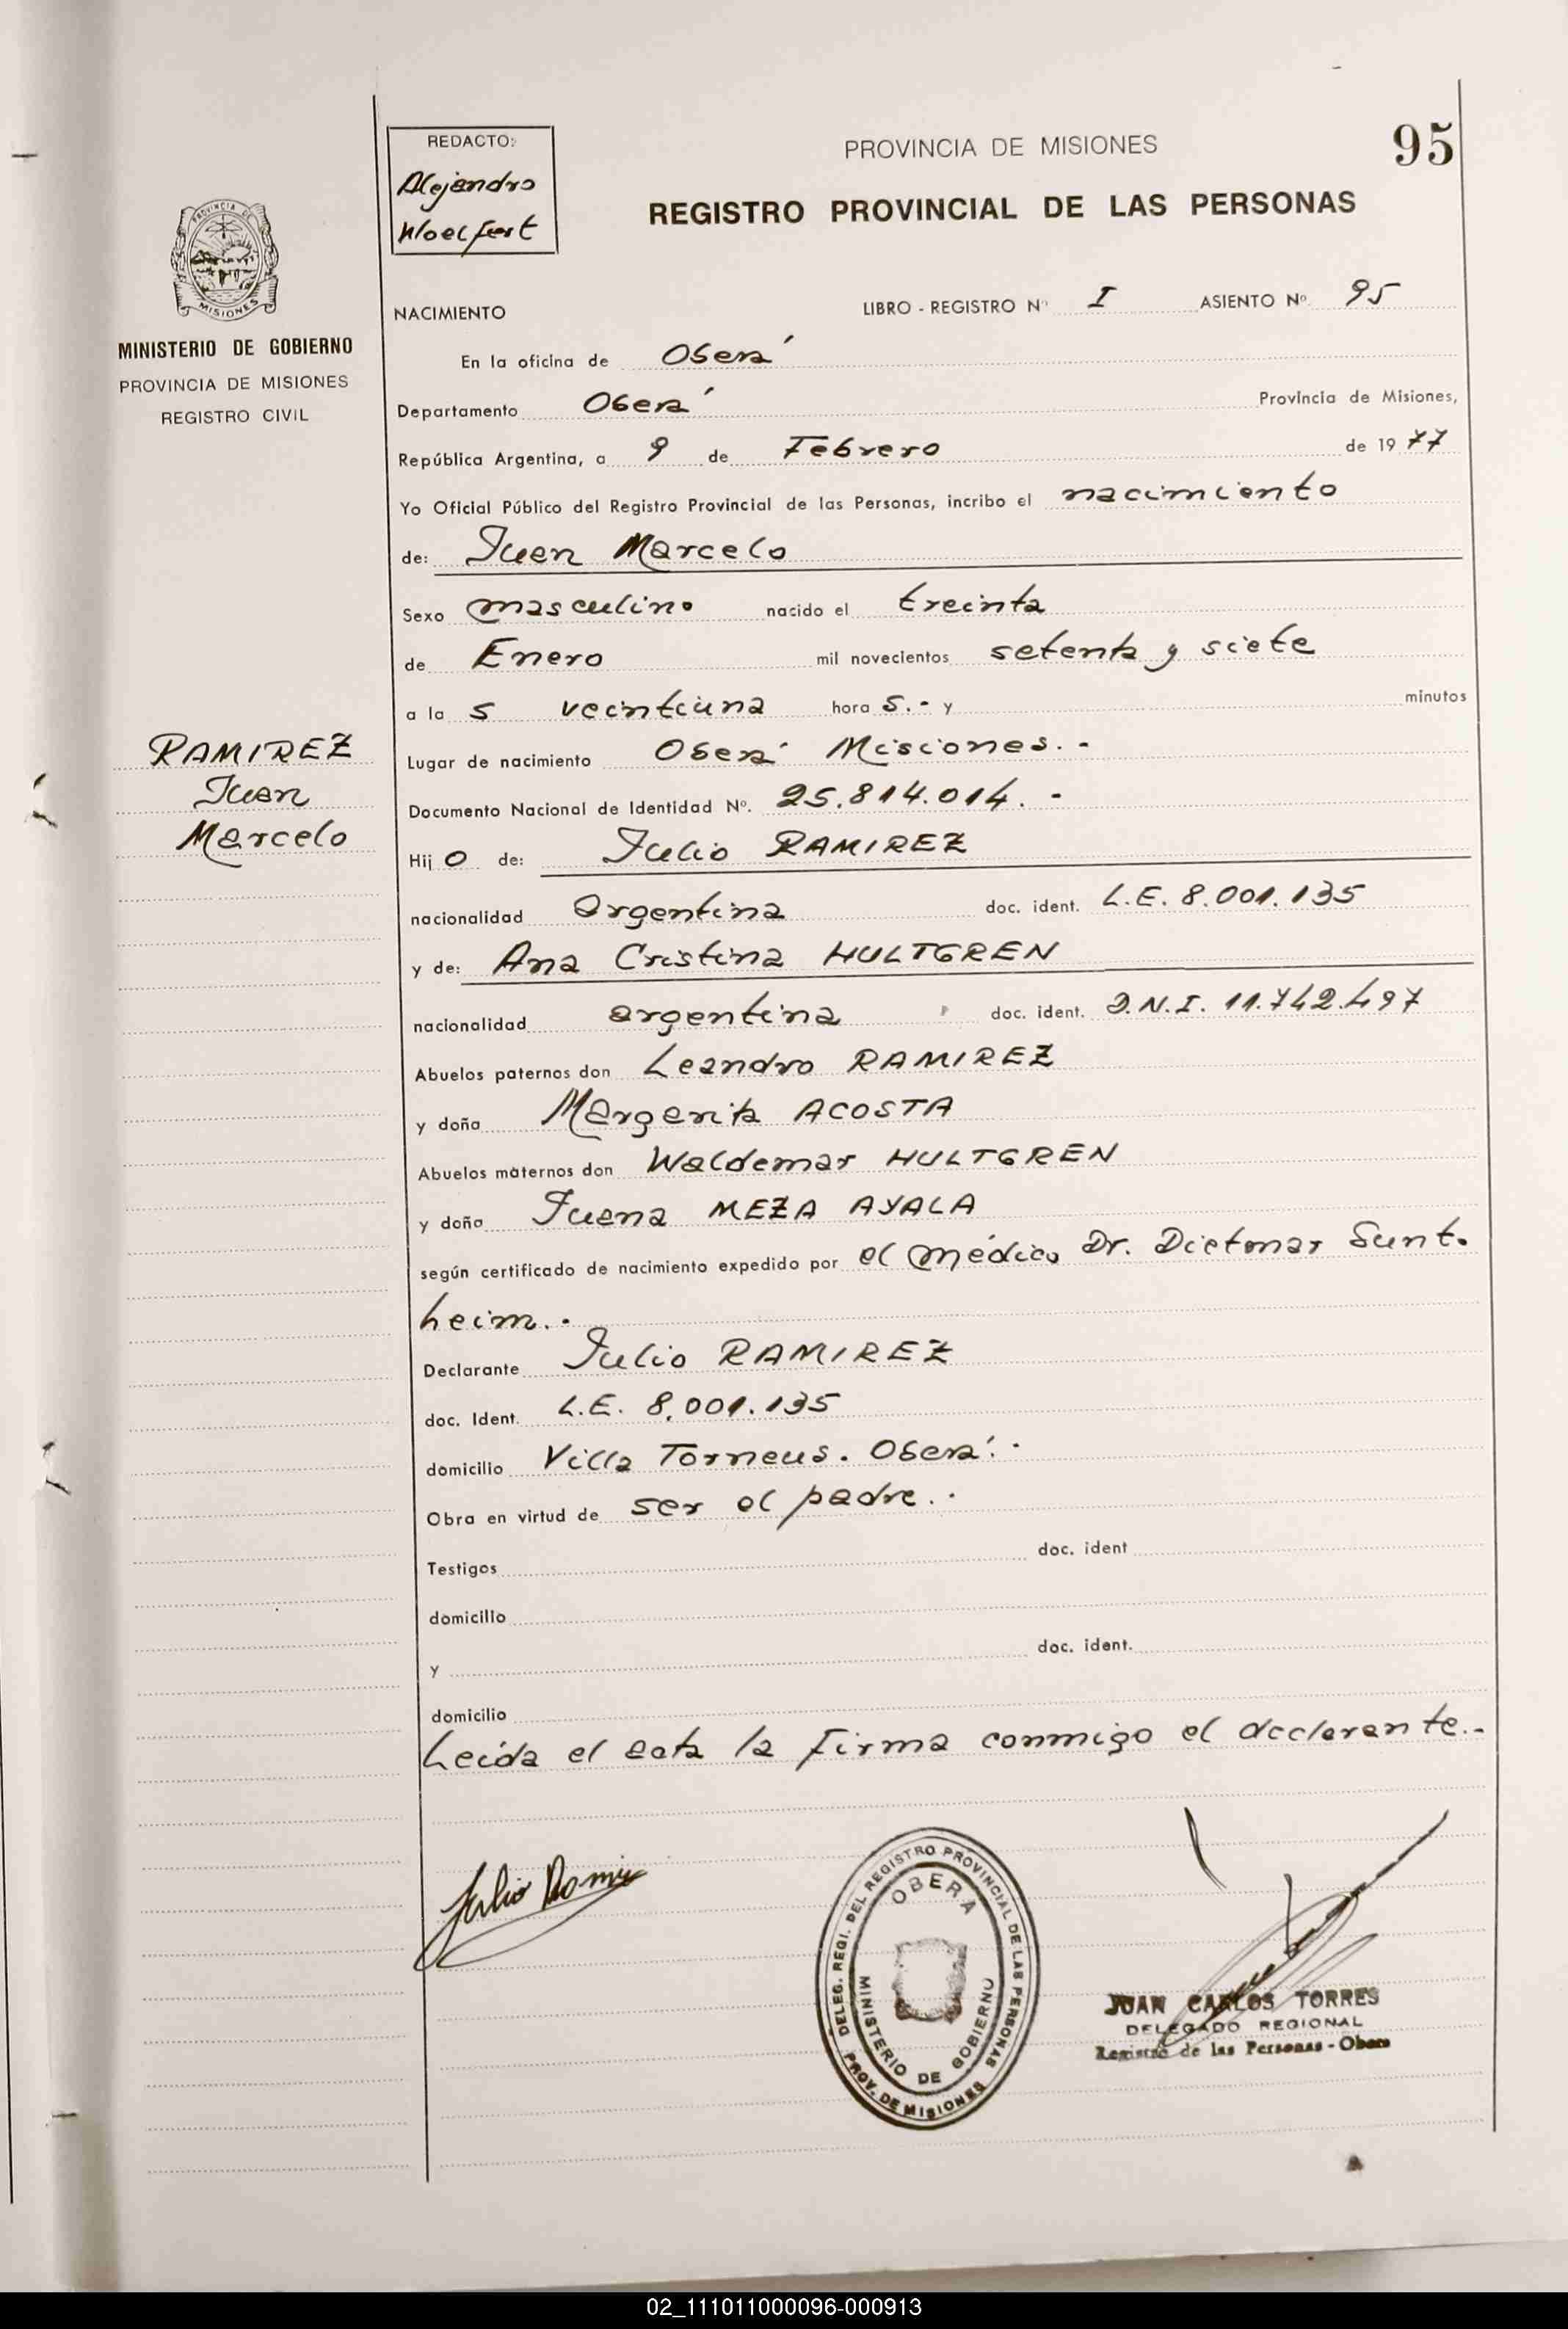 REDACTO:
Alejandro
Woelfert
PROVINCIA DE MISIONES
95
REGISTRO PROVINCIAL DE LAS PERSONAS
PROVINCIA DE
MISIONES
MINISTERIO DE GOBIERNO
PROVINCIA DE MISIONES
REGISTRO CIVIL
NACIMIENTO LIBRO - REGISTRO Nº I ASIENTO Nº 95
En la oficina de Oberá
Departamento Oberá Provincia de Misiones,
República Argentina, a 9 de Febrero de 1977
Yo Oficial Público del Registro Provincial de las Personas, incribo el nacimiento
de: Juan Marcelo
Sexo masculino nacido el treinta
de Enero mil novecientos setenta y siete
a la s veintiuna hora s.- y minutos
RAMIREZ
Juan
Marcelo
Lugar de nacimiento Oberá Misiones.-
Documento Nacional de Identidad Nº. 25.814.014.-
Hijo de: Julio RAMIREZ
nacionalidad argentina doc. ident. L.E. 8.001.135
y de: Ana Cristina HULTGREN
nacionalidad argentina doc. ident. D.N.I. 11.742.497
Abuelos paternos don Leandro RAMIREZ
y doña Margarita ACOSTA
Abuelos maternos don Waldemar HULTGREN
y doña Juana MEZA AYALA
según certificado de nacimiento expedido por el médico Dr. Dietmar Sunt.
heim.-
Declarante Julio RAMIREZ
doc. Ident. L.E. 8.001.135
domicilio Villa Torneus. Oberá.-
Obra en virtud de ser el padre.-
Testigos doc. ident
domicilio
y doc. ident.
domicilio
Leida el acta la firma conmigo el declarante.-
Julio Rami
DELEG. REGI. DEL REGISTRO PROVINCIAL DE LAS PERSONAS
OBERA
MINISTERIO DE GOBIERNO
PROV. DE MISIONES
JUAN CARLOS TORRES
DELEGADO REGIONAL
Registro de las Personas - Obera
02_111011000096-000913